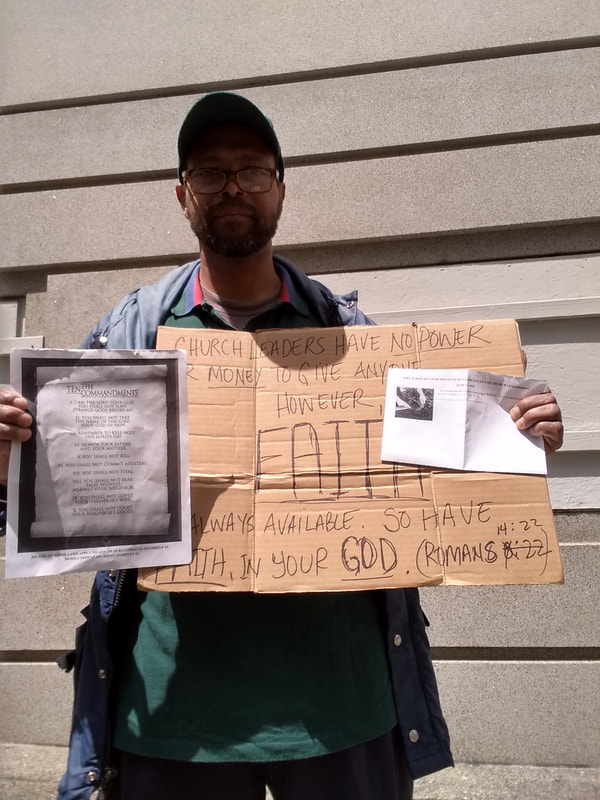 THE
TEN COMMANDMENTS
I. I AM THE LORD YOUR GOD
YOU SHALL NOT HAVE
STRANGE GODS BEFORE ME
II. YOU SHALL NOT TAKE
THE NAME OF THE LORD
YOUR GOD IN VAIN
III. REMEMBER TO KEEP HOLY
THE LORD'S DAY
IV. HONOR YOUR FATHER
AND YOUR MOTHER
V. YOU SHALL NOT KILL
VI. YOU SHALL NOT COMMIT ADULTERY
VII. YOU SHALL NOT STEAL
VIII. YOU SHALL NOT BEAR
FALSE WITNESS
AGAINST YOUR NEIGHBOR
IX. YOU SHALL NOT COVET
YOUR NEIGHBOR'S WIFE
X. YOU SHALL NOT COVET
YOUR NEIGHBOR'S GOODS
CHURCH LEADERS HAVE NO POWER
R MONEY TO GIVE ANYONE
HOWEVER,
FAITH
ALWAYS AVAILABLE. SO HAVE
FAITH, IN YOUR GOD. (ROMANS 14:22)